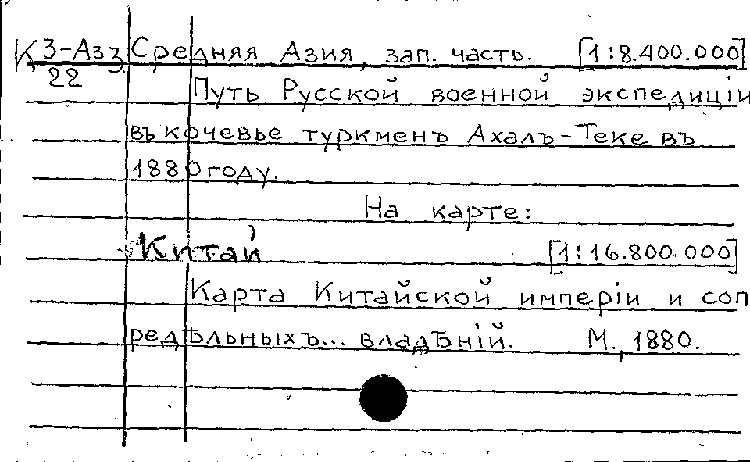 К 3-Азз Средняя Азия, зап. часть. [1:8.400.000]
22
Путь Русской военной экспедиціи
въ кочевье туркменъ Ахалъ-Теке въ
1880 году.
На карте:
Китай [1:16.800.000]
Карта Китайской имперіи и соп
редѣльныхъ... владѣній. М., 1880.